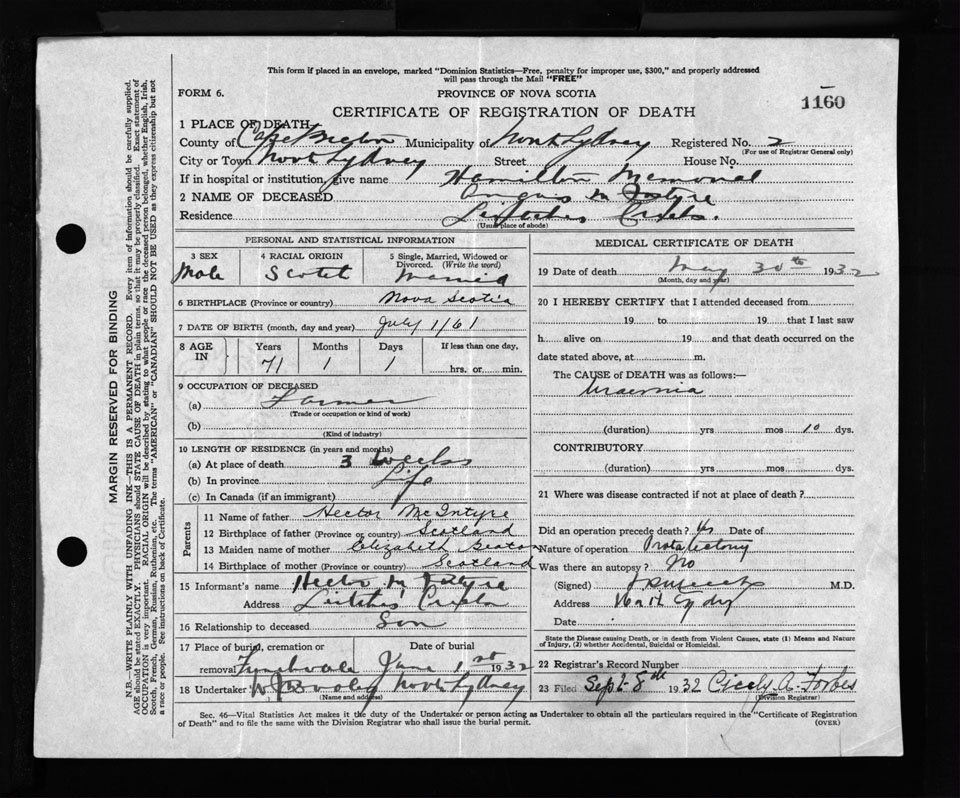 This form if placed in an envelope, marked "Dominion Statistics—Free, penalty for improper use, $300," and properly addressed
will pass through the Mail "FREE"
FORM 6.
PROVINCE OF NOVA SCOTIA
1160
CERTIFICATE OF REGISTRATION OF DEATH
1 PLACE OF DEATH
County of Cape Breton Municipality of North Sydney Registered No. 2
(For use of Registrar General only)
City or Town North Sydney Street House No.
If in hospital or institution, give name Hamilton Memorial
2 NAME OF DECEASED Angus McIntyre
Residence Leitches Creek.
(Usual place of abode)
PERSONAL AND STATISTICAL INFORMATION
3 SEX 4 RACIAL ORIGIN 5 Single, Married, Widowed or
Divorced. (Write the word)
Male Scotch Married
6 BIRTHPLACE (Province or country) Nova Scotia
7 DATE OF BIRTH (month, day and year) July 1/61
8 AGE IN Years Months Days If less than one day,
71 1 1 hrs. or min.
9 OCCUPATION OF DECEASED
(a) Farmer
(Trade or occupation or kind of work)
(b)
(Kind of industry)
10 LENGTH OF RESIDENCE (in years and months)
(a) At place of death 3 weeks
(b) In province Life
(c) In Canada (if an immigrant)
Parents
11 Name of father Hector McIntyre
12 Birthplace of father (Province or country) Scotland
13 Maiden name of mother Elizabeth Beaton
14 Birthplace of mother (Province or country) Scotland
15 Informant's name Hector McIntyre
Address Leitches Creek
16 Relationship to deceased Son
17 Place of burial, cremation or Date of burial
removal June 1st 1932
18 Undertaker North Sydney
(Name and address)
MEDICAL CERTIFICATE OF DEATH
19 Date of death May 30th 1932
(Month, day and year)
20 I HEREBY CERTIFY that I attended deceased from
19 to 19 that I last saw
h alive on 19 and that death occurred on the
date stated above, at m.
The CAUSE of DEATH was as follows:—
Uraemia
(duration) yrs mos 10 dys.
CONTRIBUTORY
(duration) yrs mos dys.
21 Where was disease contracted if not at place of death?
Did an operation precede death? Yes Date of
Nature of operation
Was there an autopsy? No
(Signed) M.D.
Address North Sydney
Date
State the Disease causing Death, or in death from Violent Causes, state (1) Means and Nature
of Injury, (2) whether Accidental, Suicidal or Homicidal.
22 Registrar's Record Number
23 Filed Sept 8th 1932 Cicely A. Forbes
(Division Registrar)
Sec. 46—Vital Statistics Act makes it the duty of the Undertaker or person acting as Undertaker to obtain all the particulars required in the "Certificate of Registration
of Death" and to file the same with the Division Registrar who shall issue the burial permit.
(OVER)
MARGIN RESERVED FOR BINDING
N.B.—WRITE PLAINLY WITH UNFADING INK—THIS IS A PERMANENT RECORD. Every item of information should be carefully supplied.
AGE should be stated EXACTLY. PHYSICIANS should STATE CAUSE OF DEATH in plain terms, so that it may be properly classified. Exact statement of
OCCUPATION is very important. RACIAL ORIGIN will be described by stating to what people or race the deceased person belonged, whether English, Irish,
Scotch, French, German, Russian, Ruthenian, etc. The terms "AMERICAN" or "CANADIAN" SHOULD NOT BE USED as they express citizenship but not
a race or people. See instructions on back of Certificate.